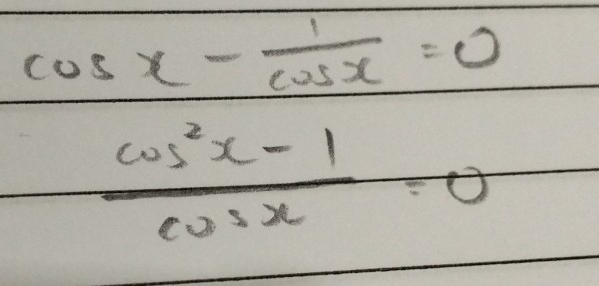 cos x - 1/cos x = 0
(cos²x - 1)/cos x = 0